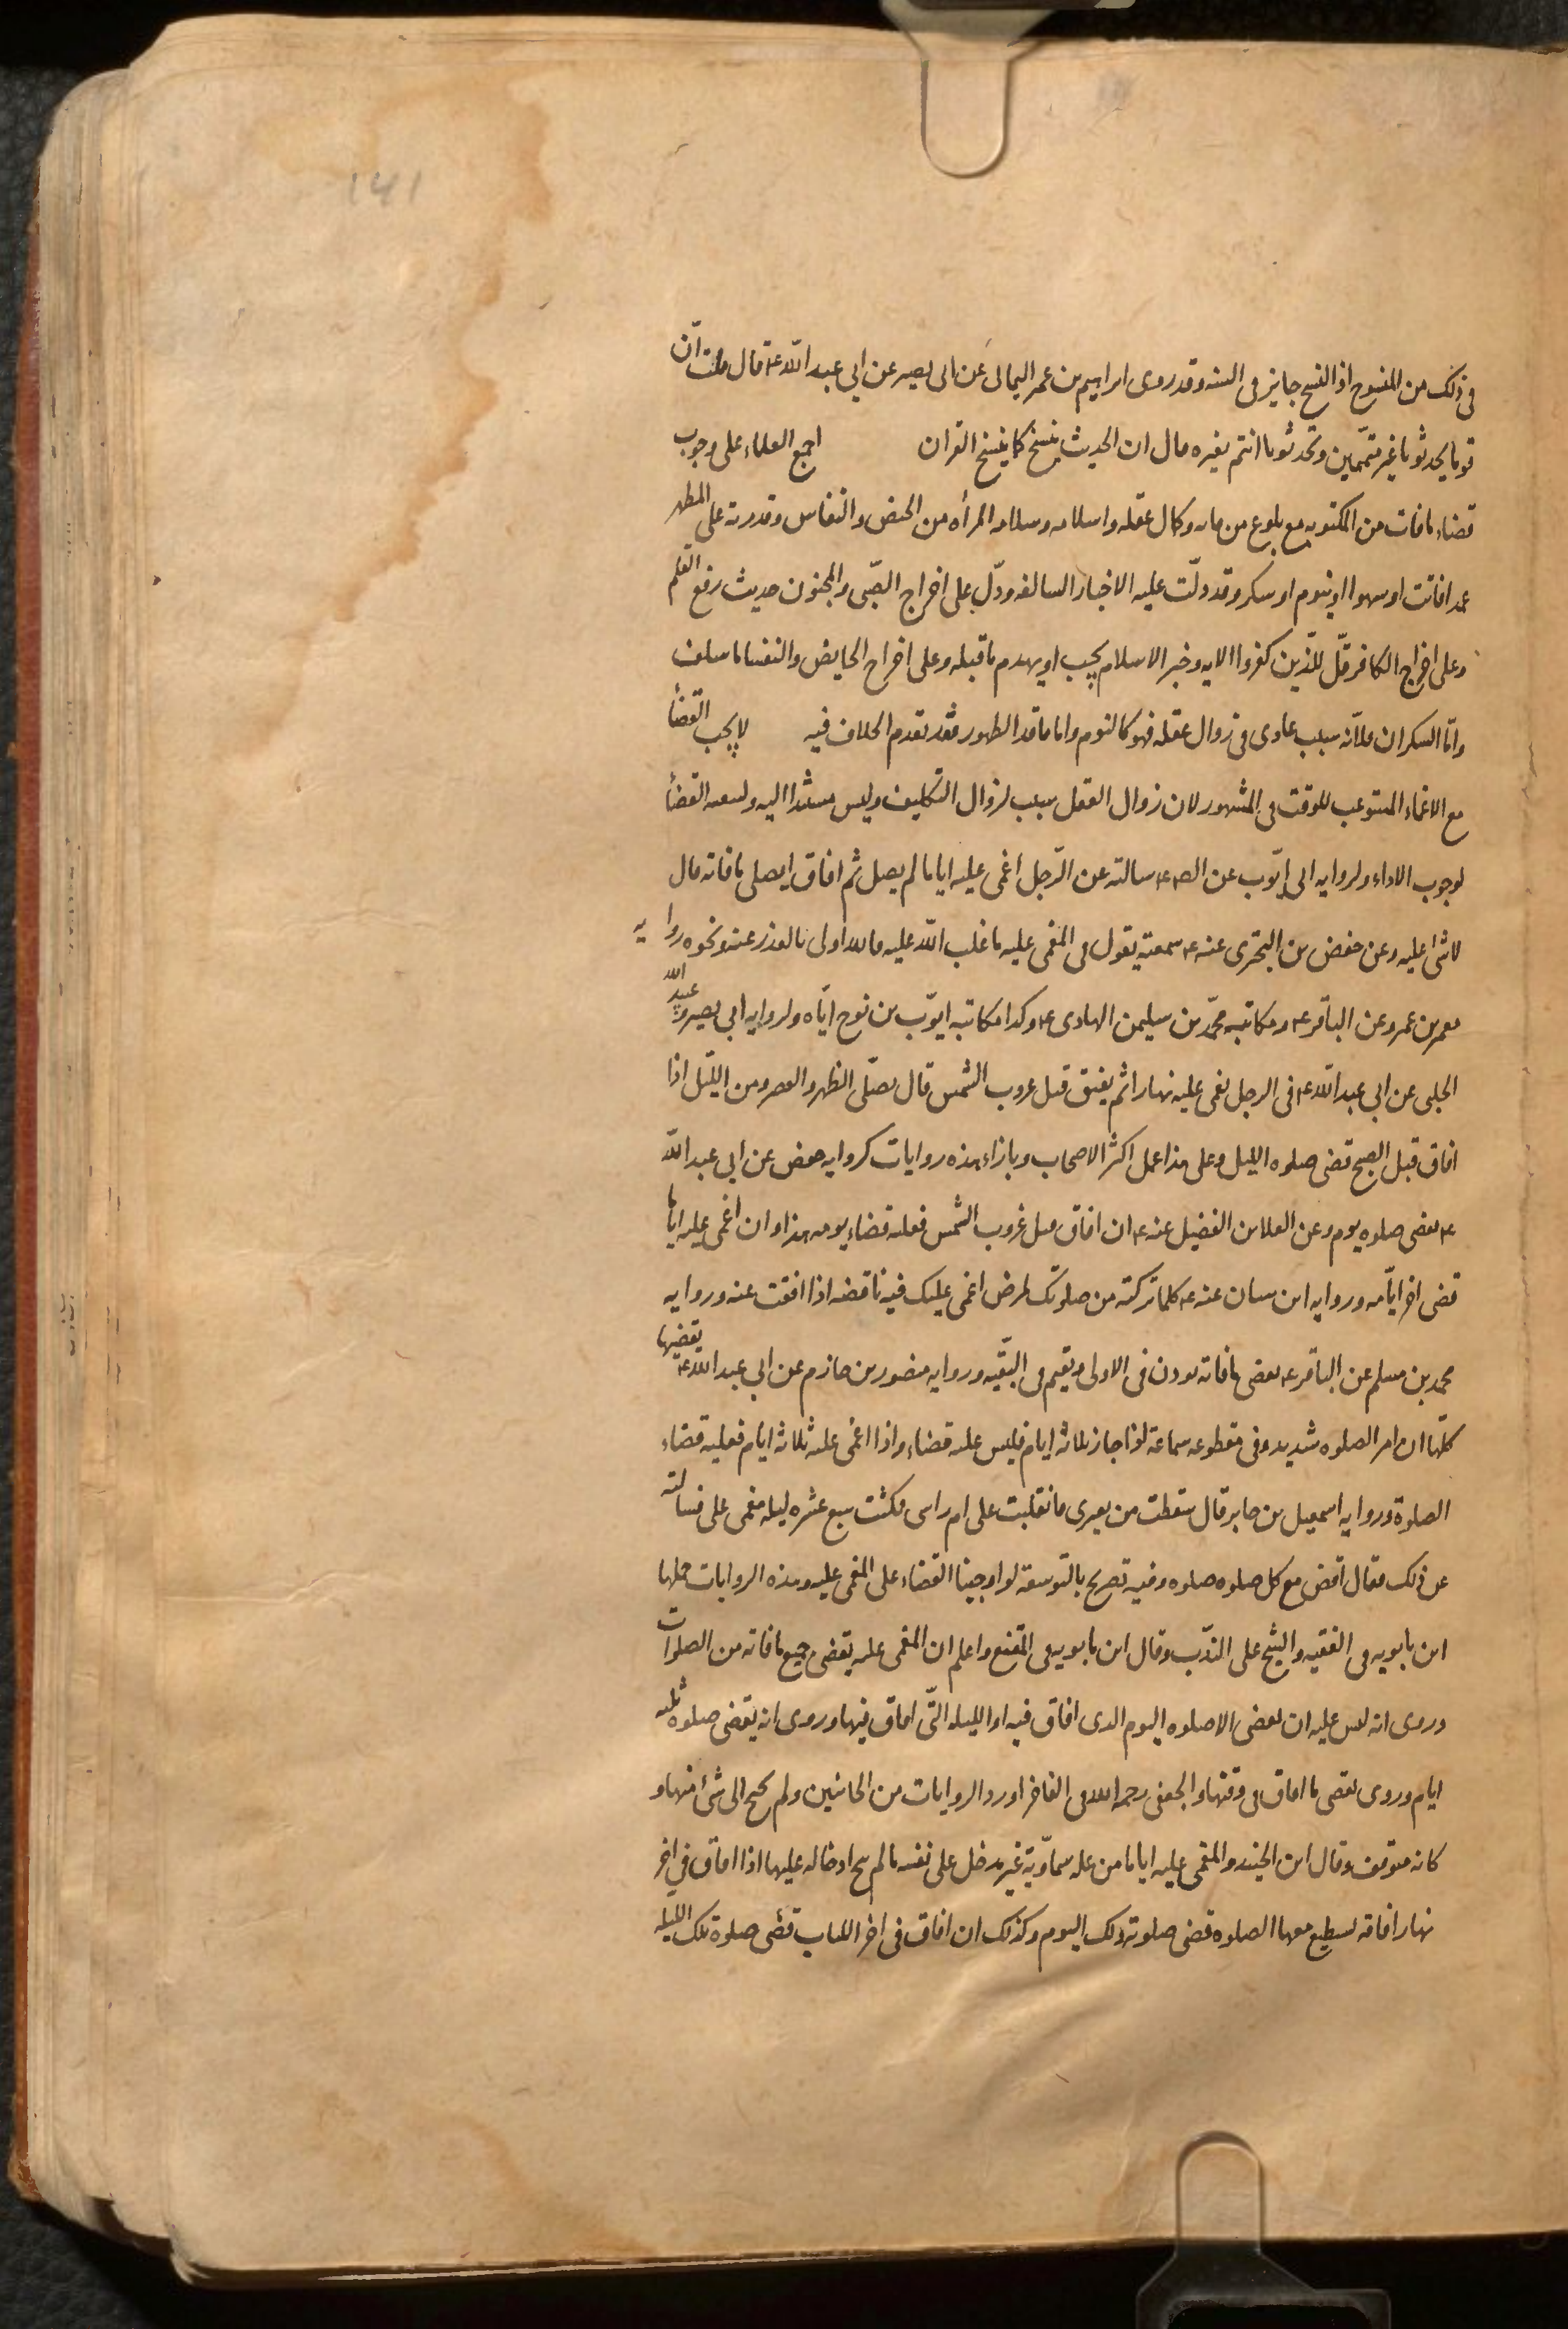 ١٤١
فى ذلك من المنسوخ اذ النسخ جايز فى السنه وقد روى ابراهيم بن عمر اليمانى عن ابى بصير عن ابى عبد الله ع قال قلت ان
قوما يحدثونا غير متهمين وتحدثونا انتم بغيره قال ان الحديث ينسخ كما ينسخ القران اجمع العلماء على وجوب
قضاء مافات من المكتوبه مع بلوغ من فاته وكمال عقله واسلامه وسلامه المرأه من الحيض والنفاس وقدرته على المطهر
عمدا فاتت او سهوا او بنوم او سكر وقد دلّت عليه الاخبار السالفه ودلّ على اخراج الصّبى والمجنون حديث رفع القلم
وعلى اخراج الكافر قل للّذين كفروا الايه وخبر الاسلام يجب او يهدم ماقبله وعلى اخراج الحايض والنفسا ما سلف
وامّا السكران فلانّه سبب عادى فى زوال عقله فهو كالنوم واما فاقد الطهور فقد تقدم الخلاف فيه لا يجب القضأ
مع الاغماء المستوعب للوقت فى المشهور لان زوال العقل سبب لزوال التكليف وليس مستندا اليه ولتبعيه القضأ
لوجوب الاداء ولروايه ابى ايّوب عن الص ع سالته عن الرّجل اغمى عليه اياما لم يصل ثم افاق ايصلى مافاته قال
لا شئ عليه وعن حفص بن البخترى عنه ع سمعته يقول فى المغمى عليه ما غلب الله عليه فالله اولى بالعذر عنه ونحوه روايه
معمر بن عمر وعن الباقر ع ومكاتبه محمّد بن سليمن الهادى ع وكذا مكاتبه ايوّب بن نوح ايّاه ولروايه ابى بصير وعبيد الله
الحلبى عن ابى عبد الله ع فى الرجل يغمى عليه نهارا ثم يفيق قبل غروب الشمس قال يصلّى الظهر والعصر ومن الليّل اذا
افاق قبل الصبح قضى صلوه الليل وعلى هذا عمل اكثر الاصحاب وبازاء هذه روايات كروايه حفص عن ابى عبد الله
ع يقضى صلوه يوم وعن العلا بن الفضيل عنه ع ان افاق قبل غروب الشمس فعليه قضاء يومه هذا وان اغمى عليه اياما
قضى اخر ايّامه وروايه ابن سنان عنه ع كلما تركته من صلوتك لمرض اغمى عليك فيه فاقضه اذا افقت عنه وروايه
محمد بن مسلم عن الباقر ع يقضى مافاته يوذن فى الاولى ويقيم فى البقّيه وروايه منصور بن حازم عن ابى عبد الله ع يقضيها
كلّها ان امر الصلوه شديد وفى مقطوعه سماعة اذا جاز ثلاثه ايام فليس عليه قضاء واذا اغمى عليه ثلاثه ايام فعليه قضاء
الصلوة وروايه اسمعيل بن جابر قال سقطت من بعيرى فانقلبت على ام راسى فمكثت سبع عشره ليله مغمى على فسالته
عن ذلك فقال اقض مع كل صلوه صلوه وفيه تصريح بالتوسعة لو اوجبنا القضاء على المغمى عليه وهذه الروايات حملها
ابن بابويه فى الفقيه والشيخ على الندّب وقال ابن بابويه فى المقنع واعلم ان المغمى عليه يقضى جميع مافاته من الصلوات
وروى انه ليس عليه ان يقضى الا صلوه اليوم الذى افاق فيه او الليله التّى افاق فيها وروى انه يقضى صلوه ثلثه
ايام وروى يقضى ما افاق فى وقتها والجعفى رحمه الله فى الفاخر اورد الروايات من الجانبين ولم يجنح الى شئ منها و
كانه متوقف وقال ابن الجنيد والمغمى عليه اياما من عله سماوّية غير مدخل على نفسه مالم يبح ادخاله عليها اذا افاق فى اخر
نهار افاقه يستطيع معها الصلوه قضى صلوة ذلك اليوم وكذلك ان افاق فى اخر الليل قضى صلوة تلك الليله